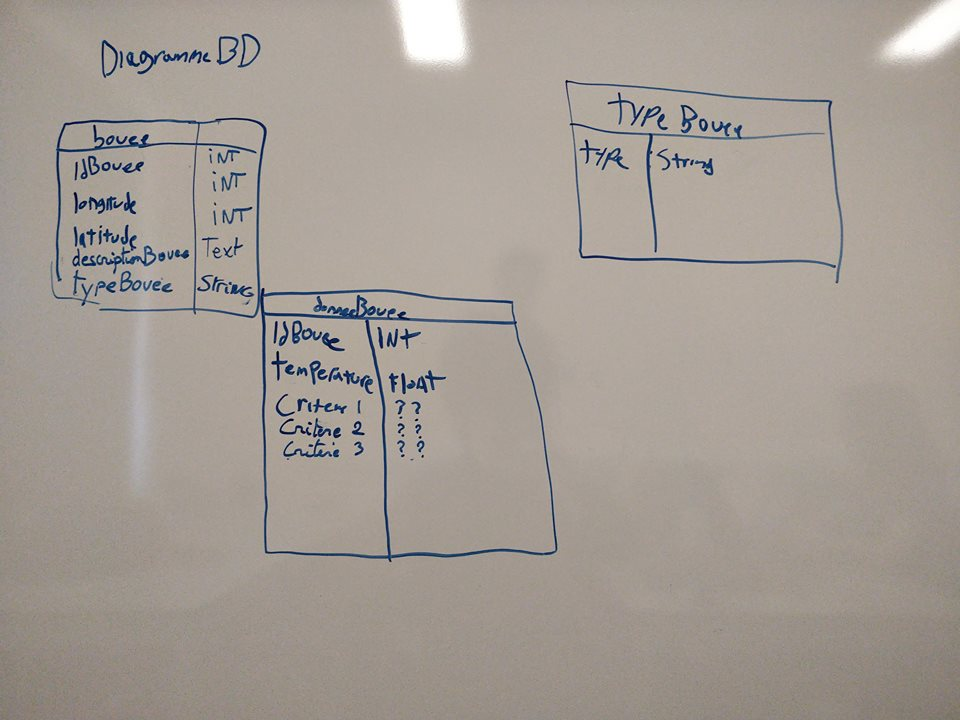 Diagramme BD
bouee
IdBouee INT
longitude INT
latitude INT
descriptionBouee Text
typeBouee STRING
type Bouee
type String
donneeBouee
IdBouee INT
temperature FLOAT
Critere 1 ??
Critere 2 ??
Critere 3 ??